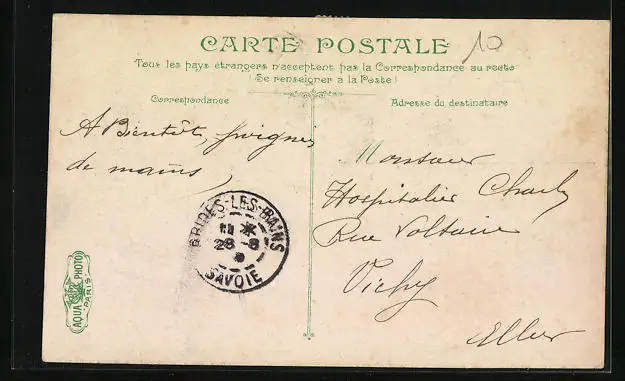 CARTE POSTALE
10
Tous les pays étrangers n'acceptent pas la Correspondance au recto
(Se renseigner à la Poste)
Correspondance
Adresse du destinataire
A Bientôt, poignées
de mains
Monsieur
Hospitalier Charles
Rue Voltaire
Vichy
Allier
BRIDES-LES-BAINS
11
28 -8
SAVOIE
AQUA PHOTO
PARIS